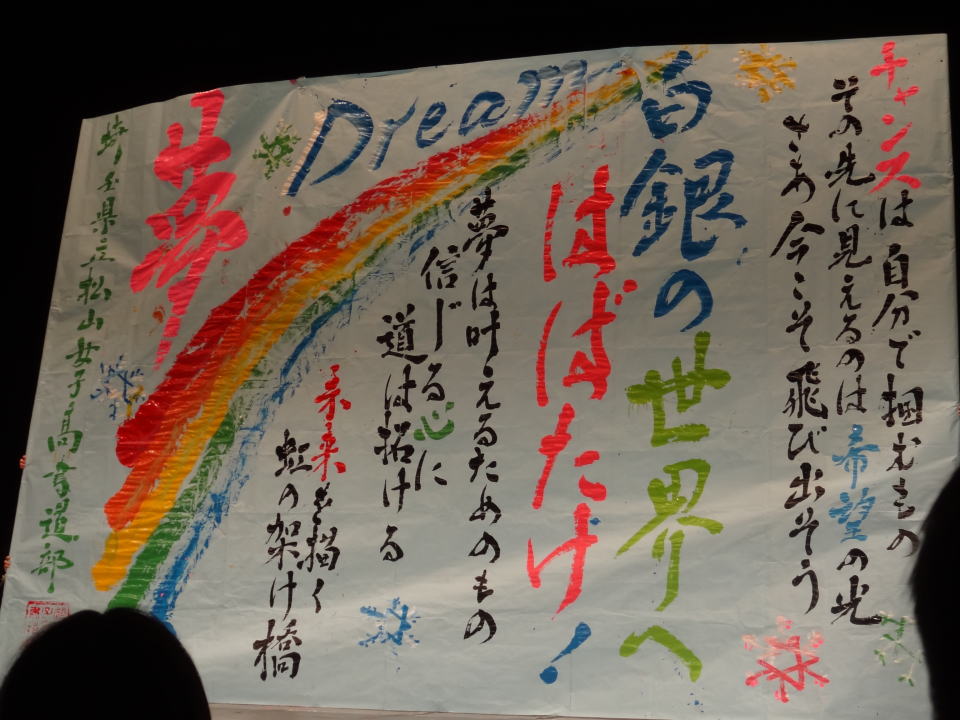 チャンスは自分で掴むもの
その先に見えるのは希望の光
さあ今こそ飛び出そう
白銀の世界へ
はばたけ!
Dream
夢は叶えるためのもの
信じる心に
道は拓ける
未来を描く
虹の架け橋
夢
埼玉県立松山女子高書道部